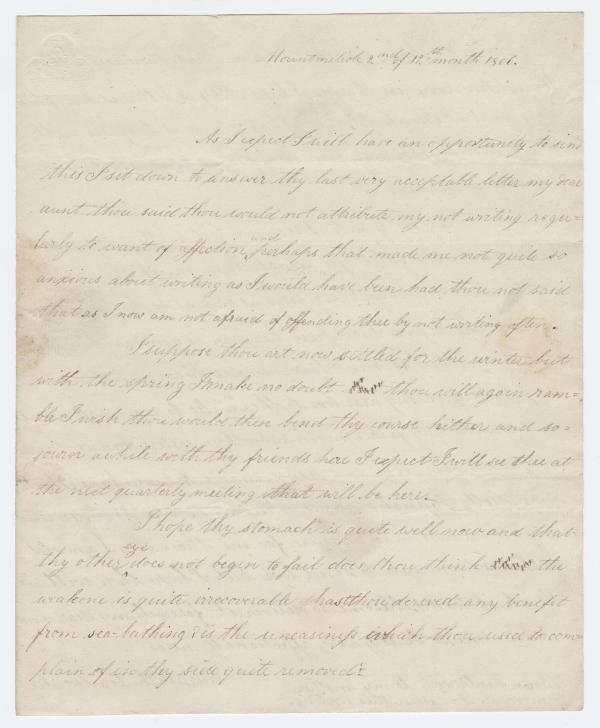 Mountmelick 2nd of 12th month 1806.
As I expect I will have an opportunity to send
this I sit down to answer thy last very acceptable letter my dear
aunt thou said thou would not attribute my not writing regu=
larly to want of affection, and perhaps that made me not quite so
anxious about writing as I would have been had thou not said
that as I now am not afraid of offending thee by not writing often.
I suppose thou art now settled for the winter but
with the spring I make no doubt thou will again ram=
ble I wish thou would then bend thy course hither and so=
journ awhile with thy friends here I expect I will see thee at
the next quarterly meeting that will be here.
I hope thy stomach is quite well now and that
thy other eye does not begin to fail does thou think the
weak one is quite irrecoverable hast thou derived any benefit
from sea-bathing? is the uneasiness which thou used to com=
plain of in thy side quite removed?